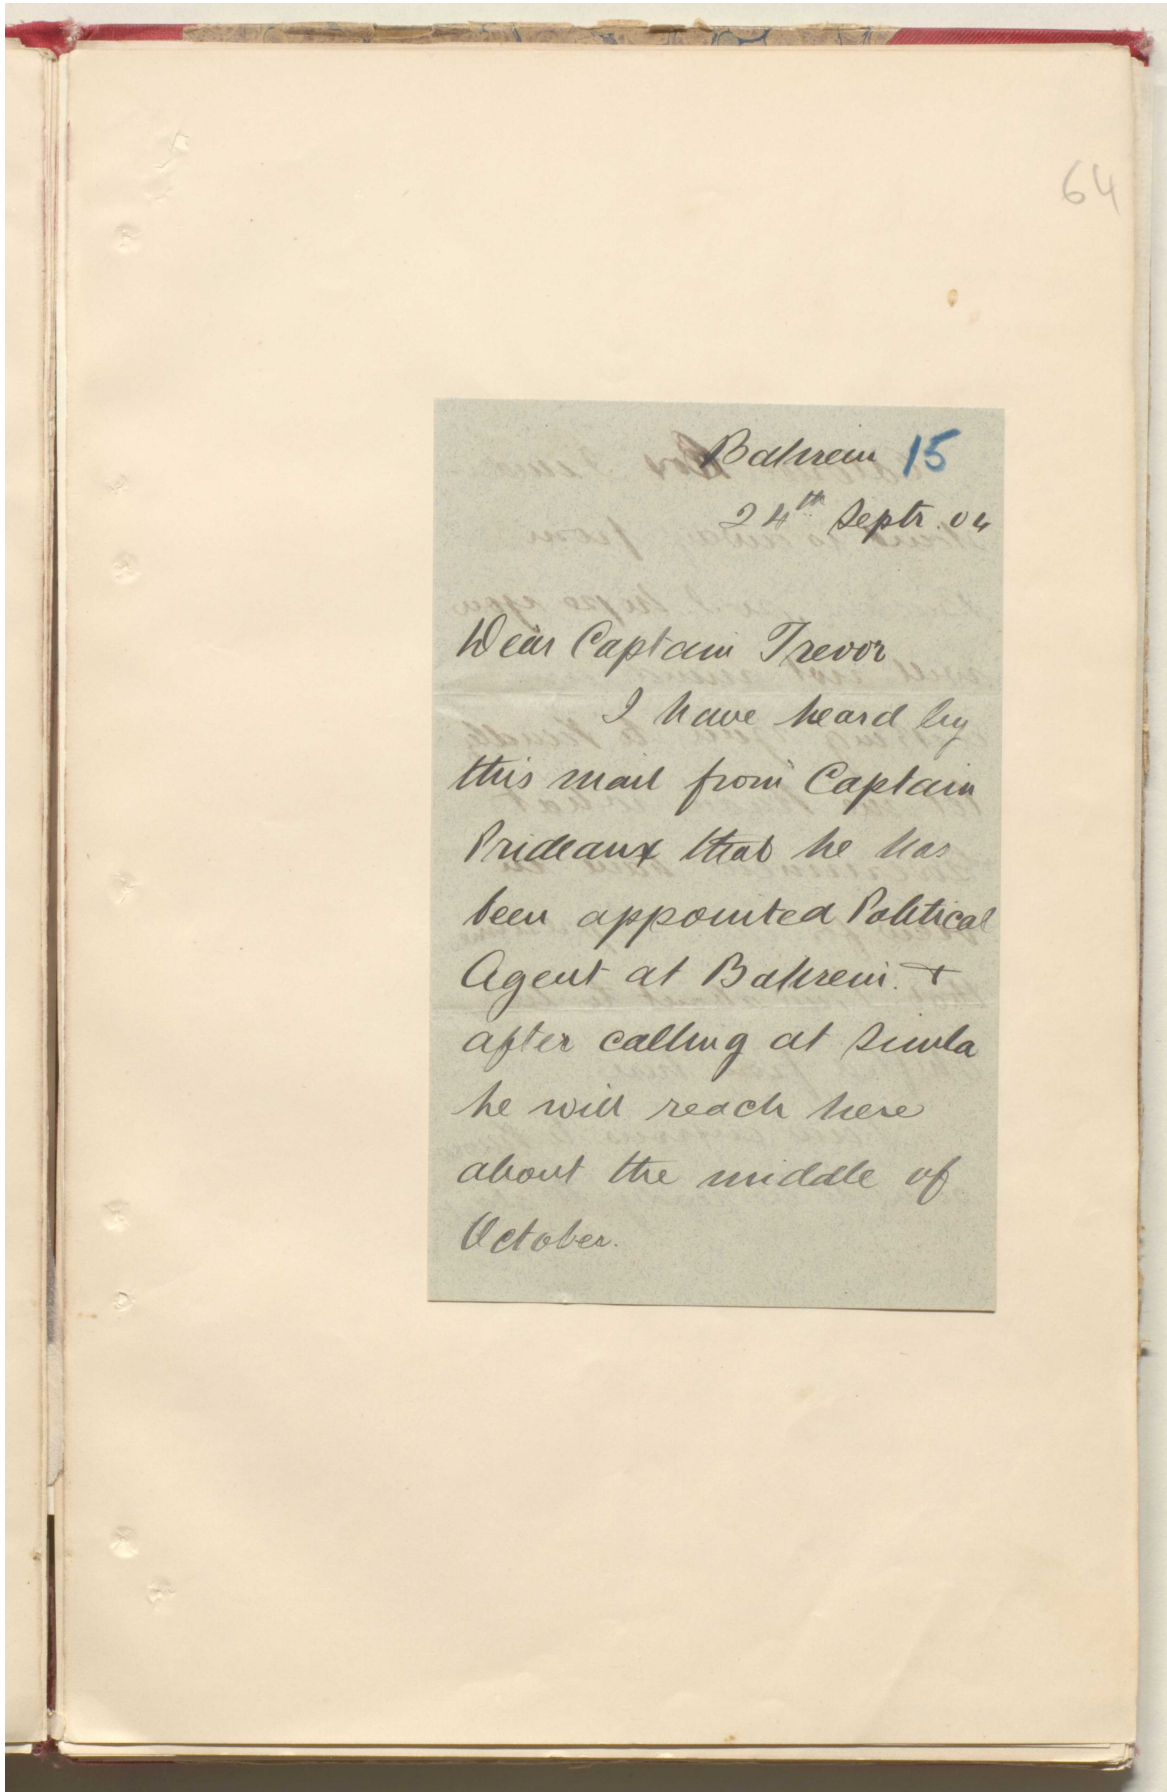 64
Bahrein 15
24th Septr. 04
Dear Captain Trevor
I have heard by
this mail from Captain
Prideaux that he has
been appointed Political
Agent at Bahrein. &
after calling at Simla
he will reach here
about the middle of
October.